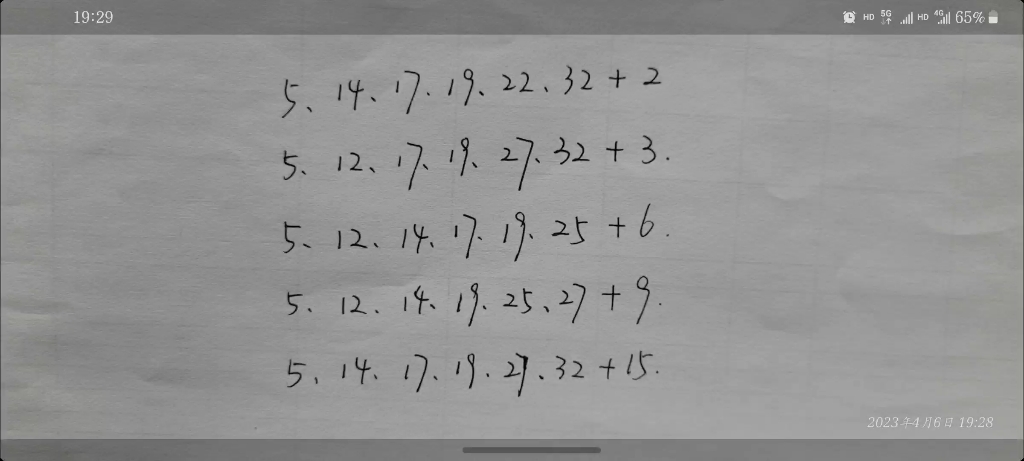 19:29 HD 5G HD 4G 65%
5、14、17、19、22、32+2
5、12、17、19、27、32+3.
5、12、14、17、19、25+6.
5、12、14、19、25、27+9.
5、14、17、19、27、32+15.
2023年4月6日 19:28